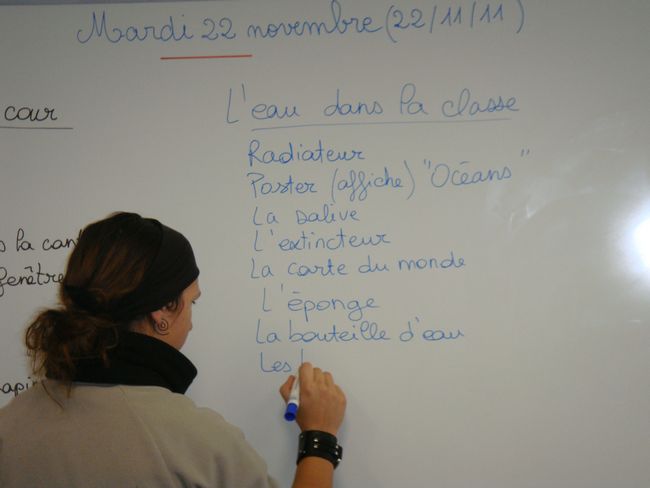 Mardi 22 novembre (22/11/11)
cour
L'eau dans la classe
Radiateur
Poster (affiche) "Océans"
La salive
L'extincteur
la can
La carte du monde
fenêtre
L'éponge
La bouteille d'eau
Les